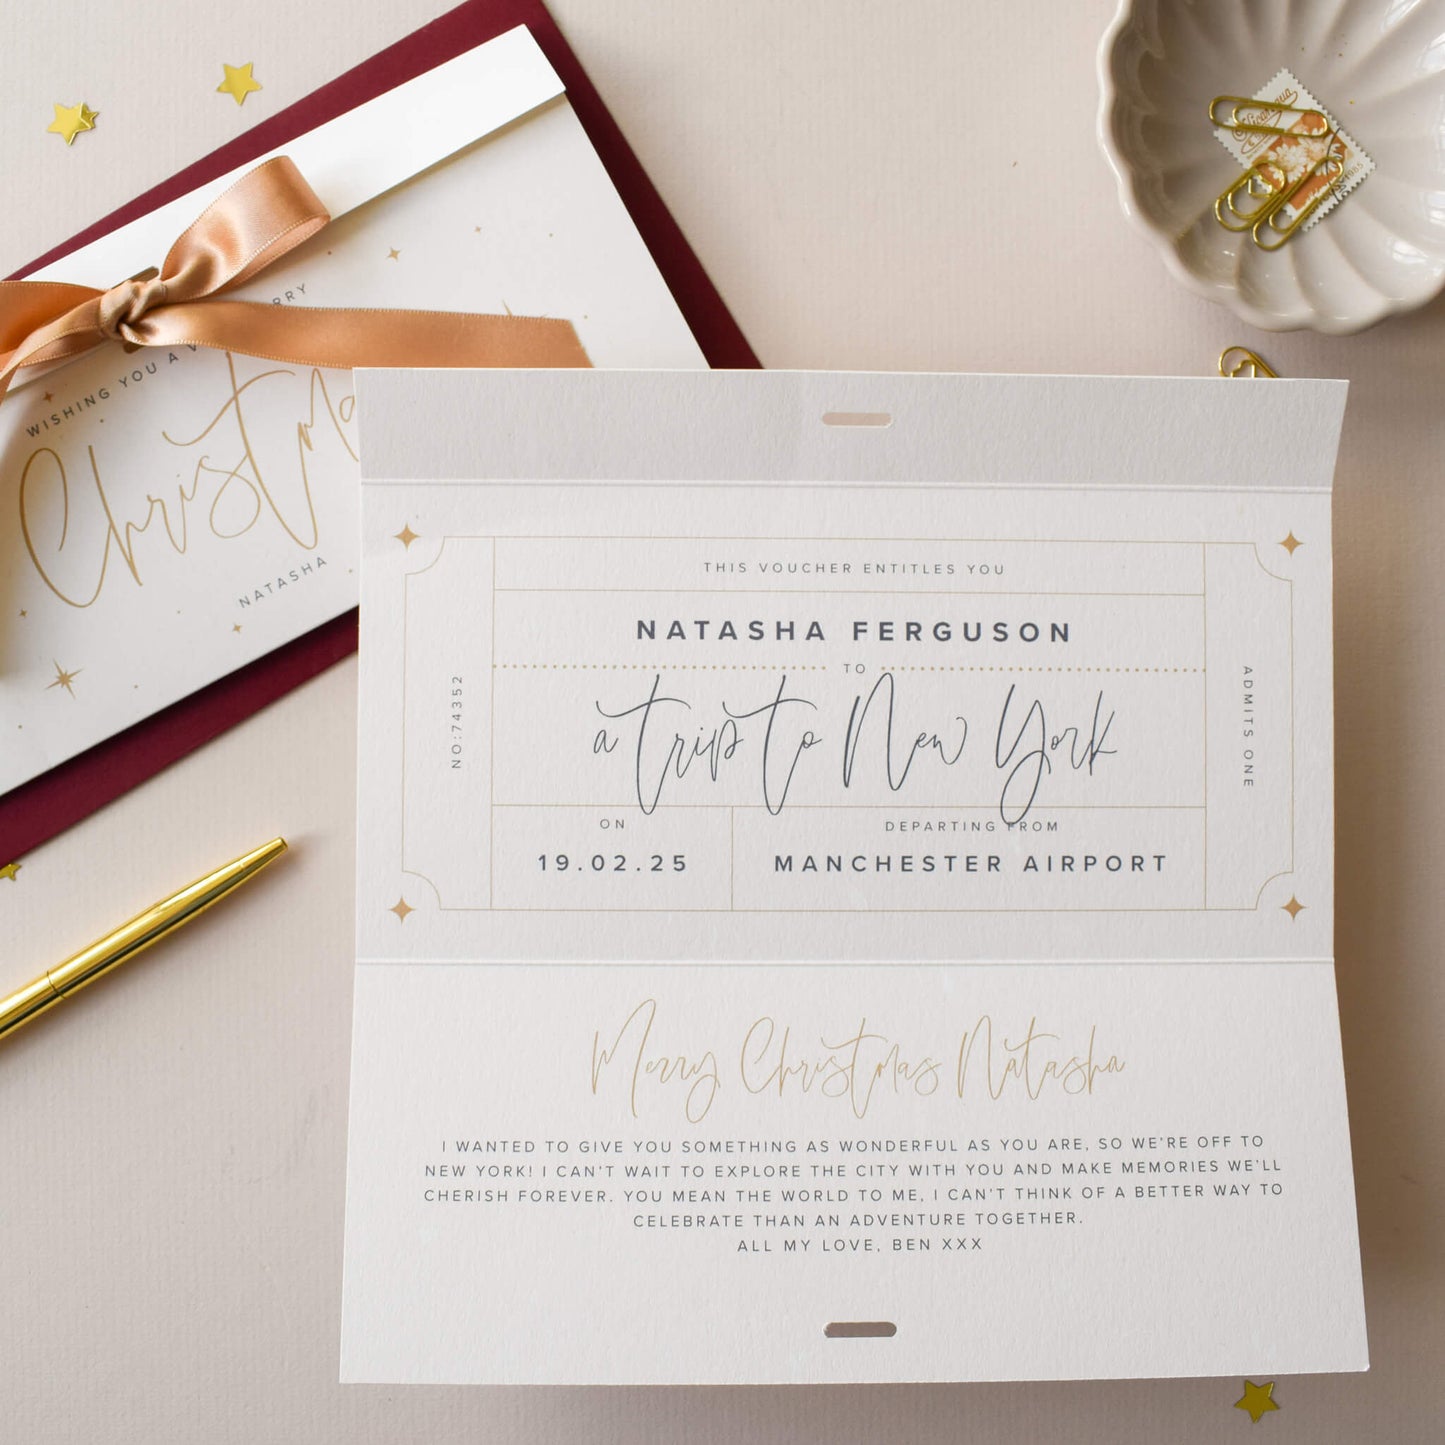 WISHING YOU A V RRY
Christma
NATASHA
Nicaragua
1985
THIS VOUCHER ENTITLES YOU
NATASHA FERGUSON
TO
a trip to New York
NO:74352
ADMITS ONE
ON
19.02.25
DEPARTING FROM
MANCHESTER AIRPORT
Merry Christmas Natasha
I WANTED TO GIVE YOU SOMETHING AS WONDERFUL AS YOU ARE, SO WE'RE OFF TO
NEW YORK! I CAN'T WAIT TO EXPLORE THE CITY WITH YOU AND MAKE MEMORIES WE'LL
CHERISH FOREVER. YOU MEAN THE WORLD TO ME, I CAN'T THINK OF A BETTER WAY TO
CELEBRATE THAN AN ADVENTURE TOGETHER.
ALL MY LOVE, BEN XXX